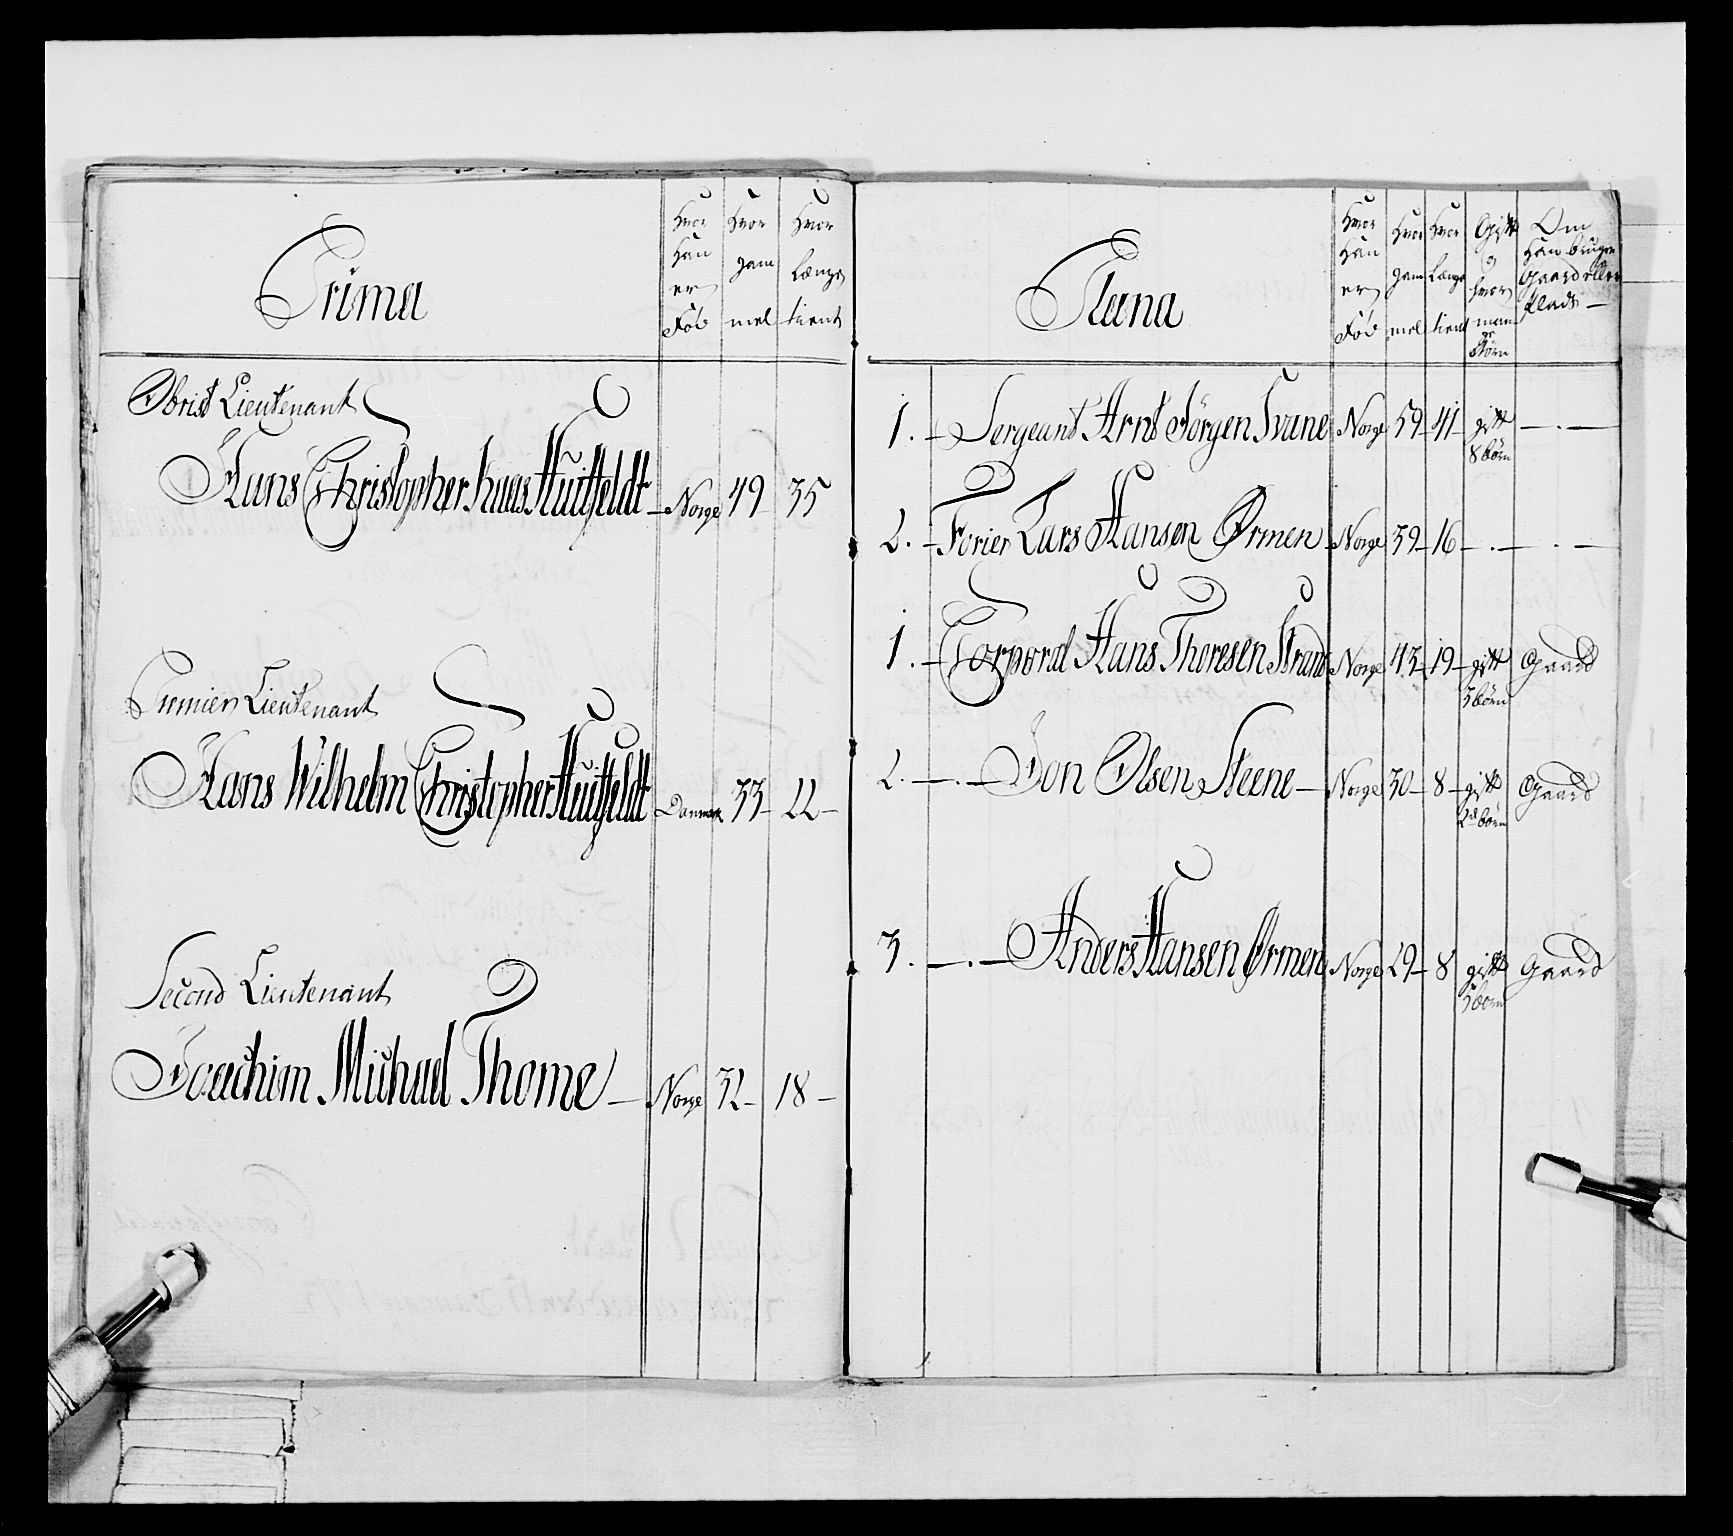 Prima
Hvor Han er Fød
Hvor gammel
Hvor Længe tient
Obrist Lieutenant
Hans Christopher Huitfeldt — Norge 49 35
Premier Lieutenant
Hans Wilhelm Christopher Huitfeldt Danmark 33 22
Second Lieutenant
Joachim Michael Thome — Norge 32 18
Plana
Hvor Han er Fød
Hvor gammel
Hvor Længe tient
Gift og hvor mange Børn
Om Han bruger Gaard eller Plads —
1. — Sergeant Arnt Jörgen Svane Norge 59 41 gift — . —
8 börn
2. — Forier Lars Hansen Ørmen Norge 39 16 — . — — . —
1. — Corporal Hans Thoresen Strand Norge 43 19 gift Gaard
3 börn
2. — . — Jon Olsen Steene — Norge 30 8 gift Gaard
2 börn
3. — . — Anders Hansen Ørmen Norge 29 8 gift Gaard
3 börn